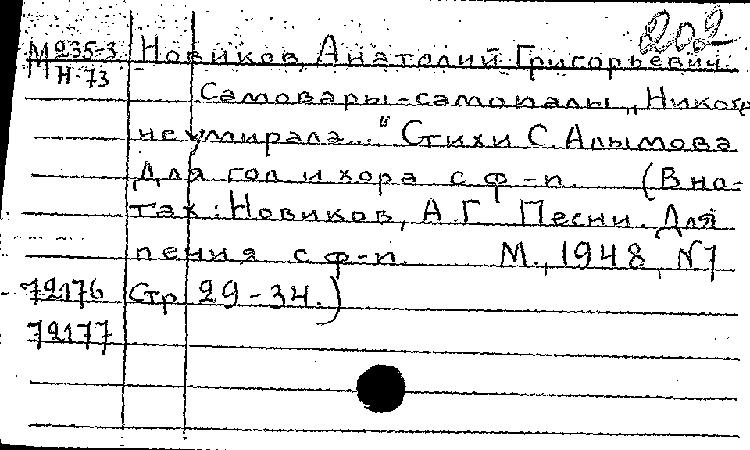 202
М 235-3 Новиков, Анатолий Григорьевич.
Н-73
Самовары-самопалы „Никог
не умирала..." Стихи С. Алымова
Для гол и хора с ф-п. (В но-
тах: Новиков, А.Г. Песни. Для
пения с ф-п. М., 1948, N7
72176 Стр 29-34.)
72177